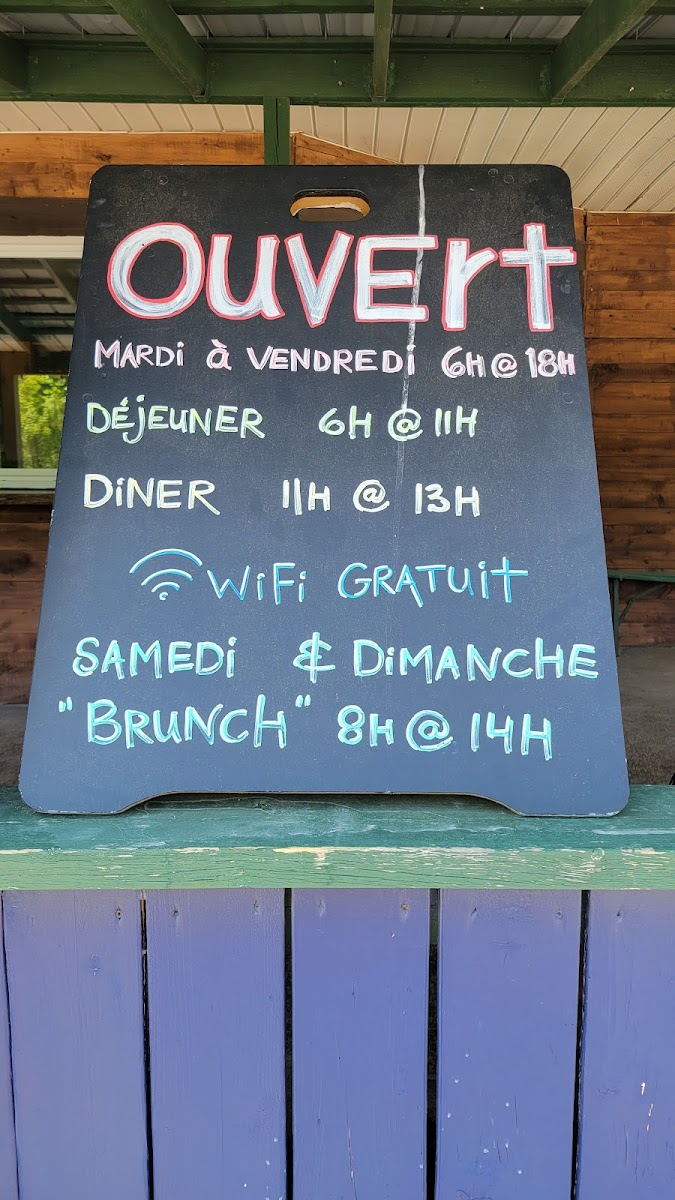 OUVErt
MARDi à VENDREDi 6H @ 18H
DÉJEUNER 6H @ 11H
DiNER 11H @ 13H
WiFi GRATUit
SAMEDi & DiMANCHE
"BRUNCH" 8H @ 14H